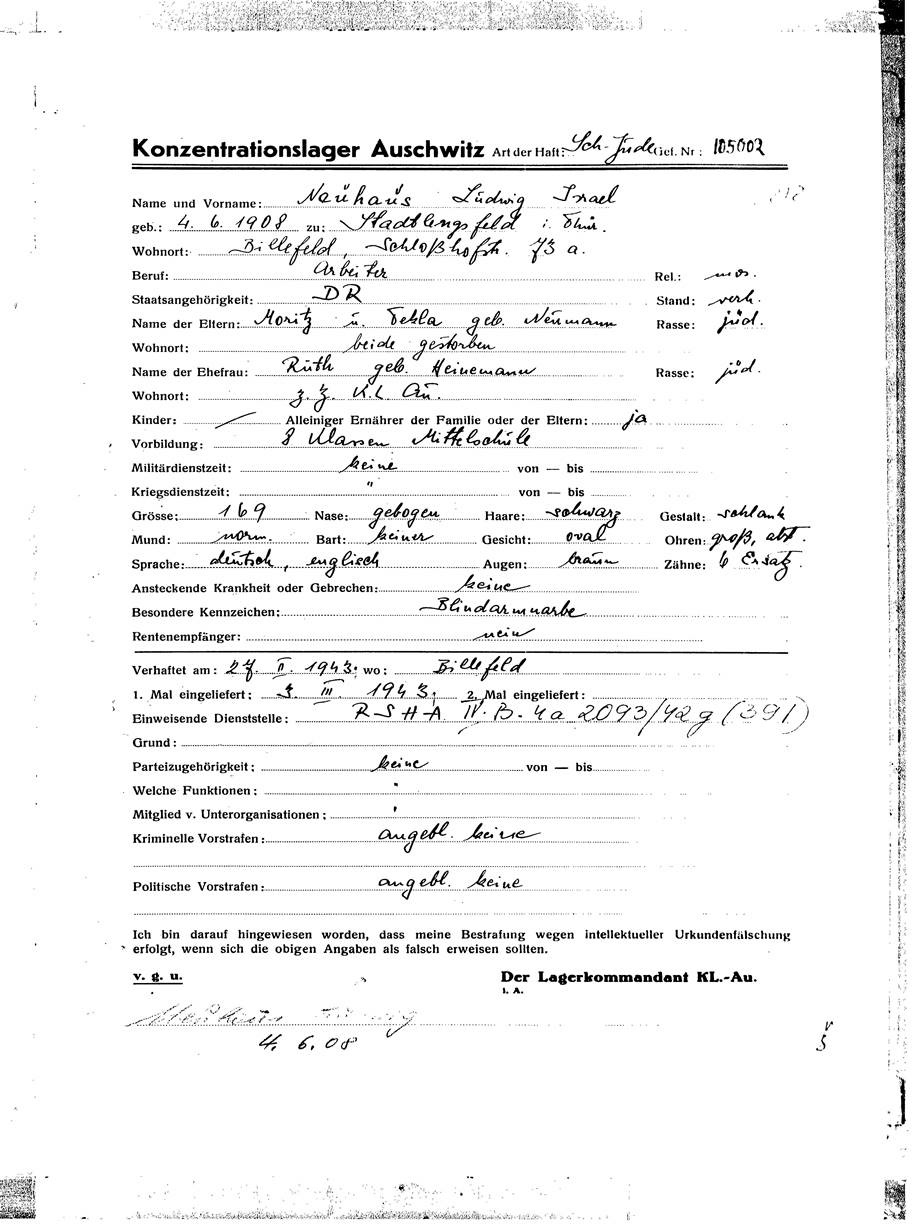 Konzentrationslager Auschwitz Art der Haft: Sch-Jude Gef. Nr: 105002
Name und Vorname: Neuhaus Ludwig Israel
geb.: 4. 6. 1908 zu: Stadtlengsfeld i. Thür.
Wohnort: Billefeld, Schloßhofstr. 73 a.
Beruf: Arbeiter Rel.: mos.
Staatsangehörigkeit: DR Stand: verh.
Name der Eltern: Moritz u. Tekla geb. Neumann Rasse: jüd.
Wohnort: beide gestorben
Name der Ehefrau: Ruth geb. Heinemann Rasse: jüd.
Wohnort: z. Z. K.L. Au.
Kinder: — Alleiniger Ernährer der Familie oder der Eltern: ja
Vorbildung: 8 Klassen Mittelschule
Militärdienstzeit: keine von — bis
Kriegsdienstzeit: " von — bis
Grösse: 169 Nase: gebogen Haare: schwarz Gestalt: schlank
Mund: norm. Bart: keiner Gesicht: oval Ohren: groß, abst.
Sprache: deutsch, englisch Augen: braun Zähne: 6 Ersatz.
Ansteckende Krankheit oder Gebrechen: keine
Besondere Kennzeichen: Blindarmnarbe
Rentenempfänger: nein
Verhaftet am: 27. II. 1943. wo: Billefeld
1. Mal eingeliefert: 3. III. 1943. 2. Mal eingeliefert:
Einweisende Dienststelle: RSHA IV-B-4a 2093/42g (391)
Grund:
Parteizugehörigkeit: keine von — bis
Welche Funktionen: "
Mitglied v. Unterorganisationen: "
Kriminelle Vorstrafen: angebl. keine
Politische Vorstrafen: angebl. keine
Ich bin darauf hingewiesen worden, dass meine Bestrafung wegen intellektueller Urkundenfälschung
erfolgt, wenn sich die obigen Angaben als falsch erweisen sollten.
v. g. u. Der Lagerkommandant KL.-Au.
i. A.
Neuhaus Ludwig
4. 6. 08